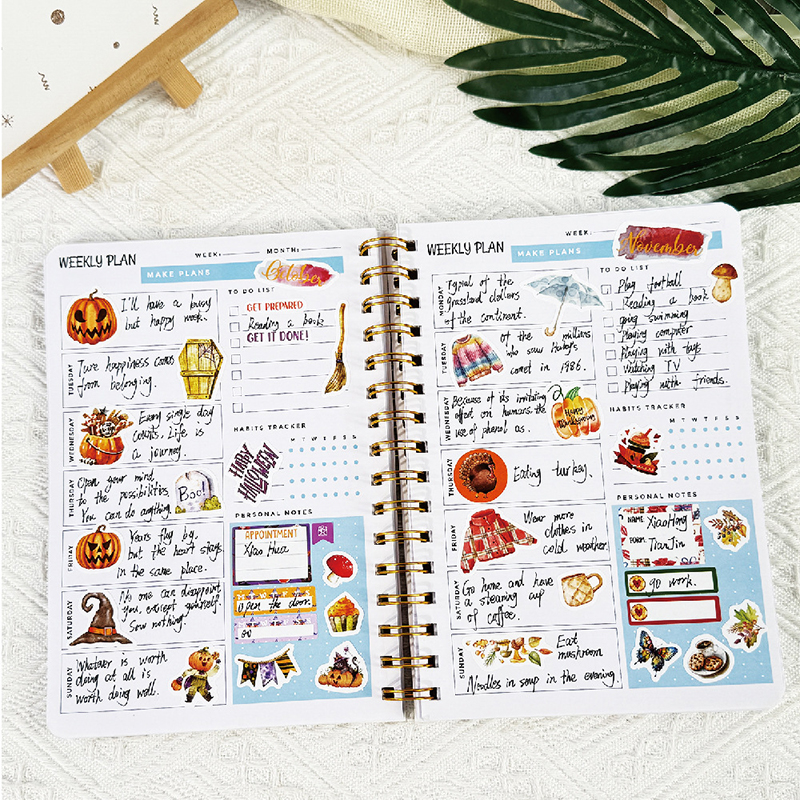 WEEKLY PLAN
WEEK:
MONTH:
MAKE PLANS
October
I'll have a busy
but happy week.
TUESDAY
Ture happiness comes
from belonging.
WEDNESDAY
Every single day
counts. Life is
a journey.
THURSDAY
Open your mind
to the possibilities.
You can do anything
Boo!
FRIDAY
Years flay by,
but the heart stays
in the same place.
SATURDAY
No one can disappoint
you, except yourself.
Sow nothing.
SUNDAY
Whatever is worth
doing at all is
worth doing well.
TO DO LIST
GET PREPARED
Reading a book
GET IT DONE!
HABITS TRACKER
M T W T F S S
HAPPY
HALLOWEEN
PERSONAL NOTES
APPOINTMENT
Xiao Hua
Open the door.
go
WEEKLY PLAN
WEEK:
MAKE PLANS
November
MONDAY
Typial of the
grassland dollars
is the continent.
TUESDAY
of the millions
who saw Haleys
comet in 1986.
WEDNESDAY
Because of its irritating
effect on humans, the
use of phenol as.
Happy
Thanksgiving
THURSDAY
Eating turkey.
FRIDAY
Wear more
clothes in
cold weather.
SATURDAY
Go home and have
a steaming cup
of coffee.
SUNDAY
Eat
mushroom
Noodles in soup in the evening.
TO DO LIST
Play football
Reading a book
going swimming
Playing computer
Playing with toys
Watching TV
Playing with friends.
HABITS TRACKER
M T W T F S S
PERSONAL NOTES
NAME: XiaoHong
FROM: TianJin
go work.